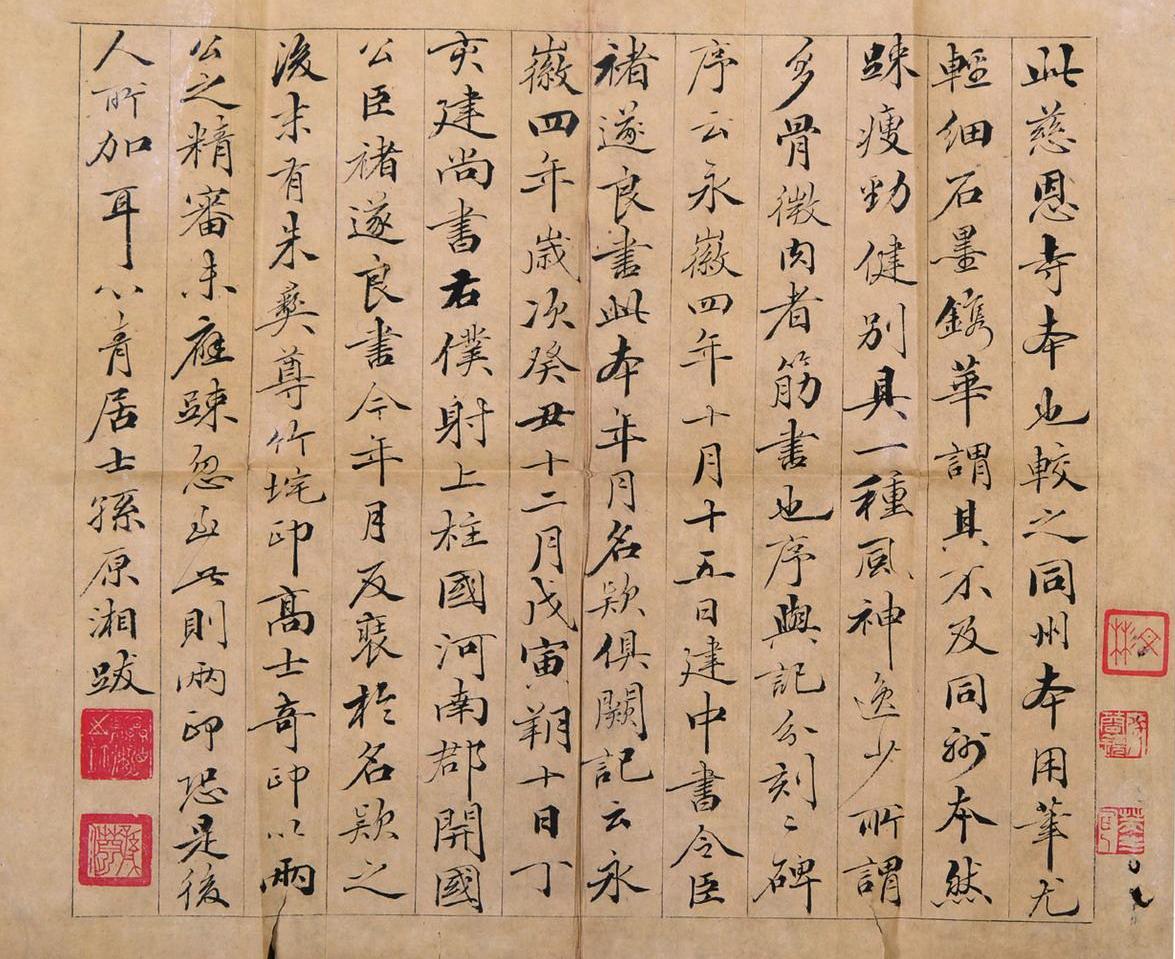 此慈恩寺本也較之同州本用筆尤
輕細石墨鐫華謂其不及同州本然
踈瘦勁健別具一種風神逸少所謂
多骨微肉者筋書也序與記分刻二碑
序云永徽四年十月十五日建中書令臣
褚遂良書此本年月名欵俱闕記云永
徽四年歲次癸丑十二月戊寅朔十日丁
亥建尚書右僕射上柱國河南郡開國
公臣褚遂良書今年月反裝於名欵之
後末有朱彝尊竹垞印高士奇印以兩
公之精審未應踈忽至此則兩印恐是後
人所加耳心青居士孫原湘跋